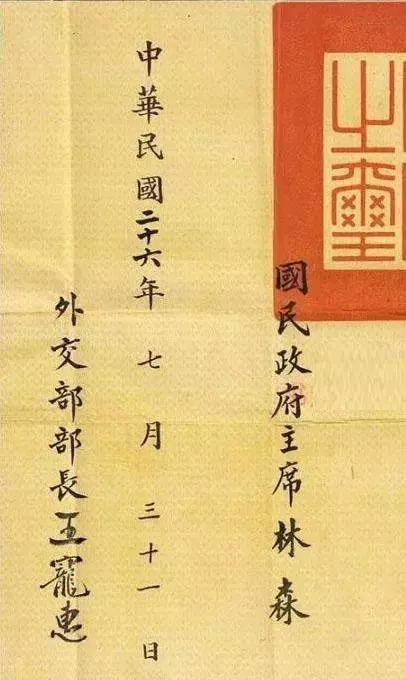 之璽
國民政府主席林森
中華民國二十六年七月三十一日
外交部部長王寵惠